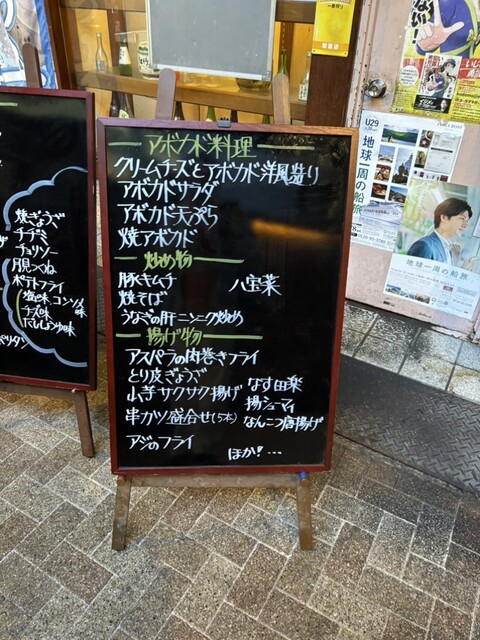 アボカド料理
クリームチーズとアボカド洋風造り
アボカドサラダ
アボカド天ぷら
焼アボカド
炒め物
豚キムチ 八宝菜
焼そば
うなぎの肝ニンニク炒め
揚げ物
アスパラの肉巻きフライ
とり皮ぎょうざ
山芋サクサク揚げ なす田楽
揚シューマイ
串カツ盛合せ(5本) なんこつ唐揚げ
アジのフライ
ほか!…
焼ぎょうざ
チヂミ
チョリソー
月見つくね
ポテトフライ
塩味 コンソメ味
チーズ味
だししょうゆ味
U29
地球一周の船旅
地球一周の船旅